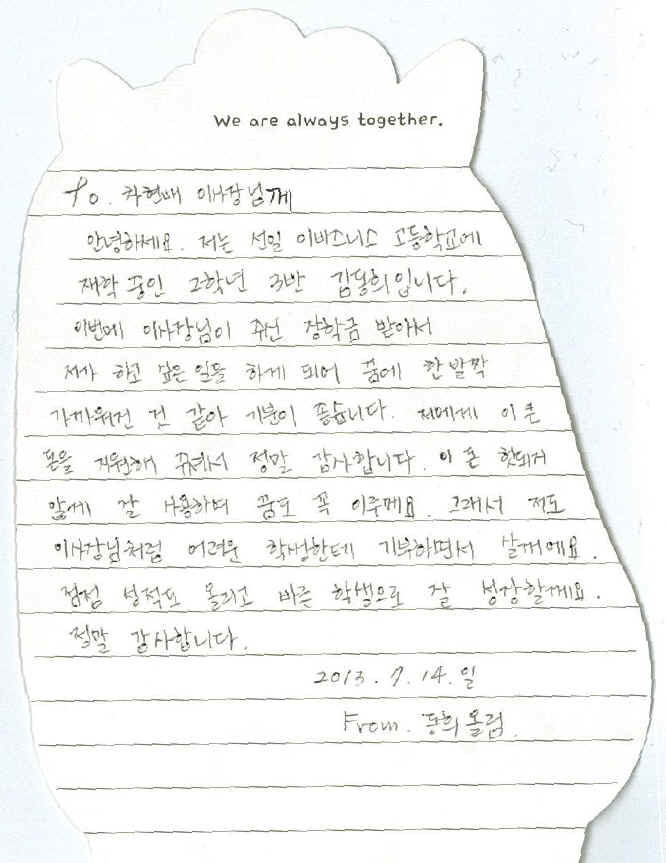 We are always together.
To. 차현배 이사장님께
안녕하세요. 저는 선일 이비즈니스 고등학교에
재학 중인 2학년 3반 김동희입니다.
이번에 이사장님이 주신 장학금 받아서
제가 하고 싶은 일들 하게 되어 꿈에 한 발짝
가까워진 것 같아 기분이 좋습니다. 저에게 이 큰
돈을 지원해 주셔서 정말 감사합니다. 이 돈 헛되지
않게 잘 사용하여 꿈도 꼭 이루께요. 그래서 저도
이사장님처럼 어려운 학생한테 기부하면서 살께예요.
점점 성적도 올리고 바른 학생으로 잘 성장할께요.
정말 감사합니다.
2013. 7. 14. 일
From. 동희 올림.